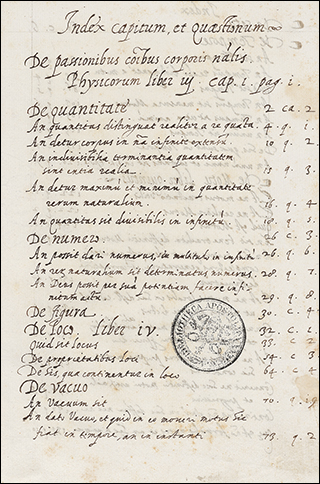 Index capitum, et quæstionum
De passionibus coibus corporis nalis
Physicorum liber iij cap. i. pag. i.
De quantitate 2 ca. 2
An quantitas distinguat realiter a re quāta. 4. q. i.
An detur corpus in rā infinite extensū 10 q. 2.
An indivisibilia terminantia quantitatem
sint entia realia. 13 q. 3.
An detur maximū et minimū in quantitate
rerum naturalium. 16. q. 4
An quantitas sit divisibilis in infinitū. 18. q. 5.
De numero 26 c. 3.
An possit dari numerus, in multitud. in infinitū 26. q. 6.
An rex naturalium sit determinatus numerus. 28. q. 7.
An Deus possit per suā potentiam facere infi-
nitum actu. 29. q. 8.
De figura 30. c. 4.
De loco. liber iv. 32. c. i.
Quid sit locus 33. 2
De proprietatibus loci 54. c 3
De iis, quæ continentur in loco 64. c 4
De vacuo
An vacuum sit 70. q.
An dato Vacuo, et quid in eo moveri motus sic
fiat in tempore, an in instanti 73. q. 2
BIBLIOTHECA APOSTOLICA